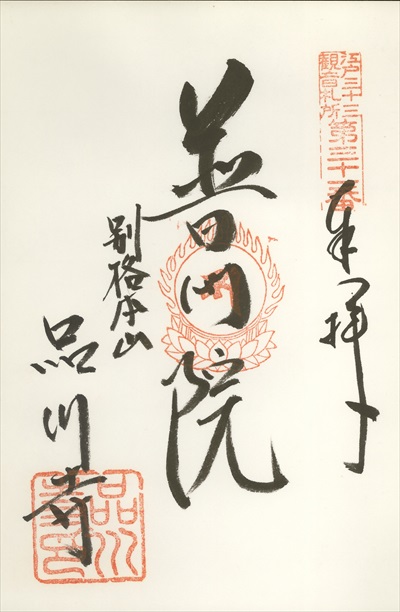 江戸三十三
観音札所
第三十一番
奉拝
普門院
別格本山
品川寺
品川
寺印